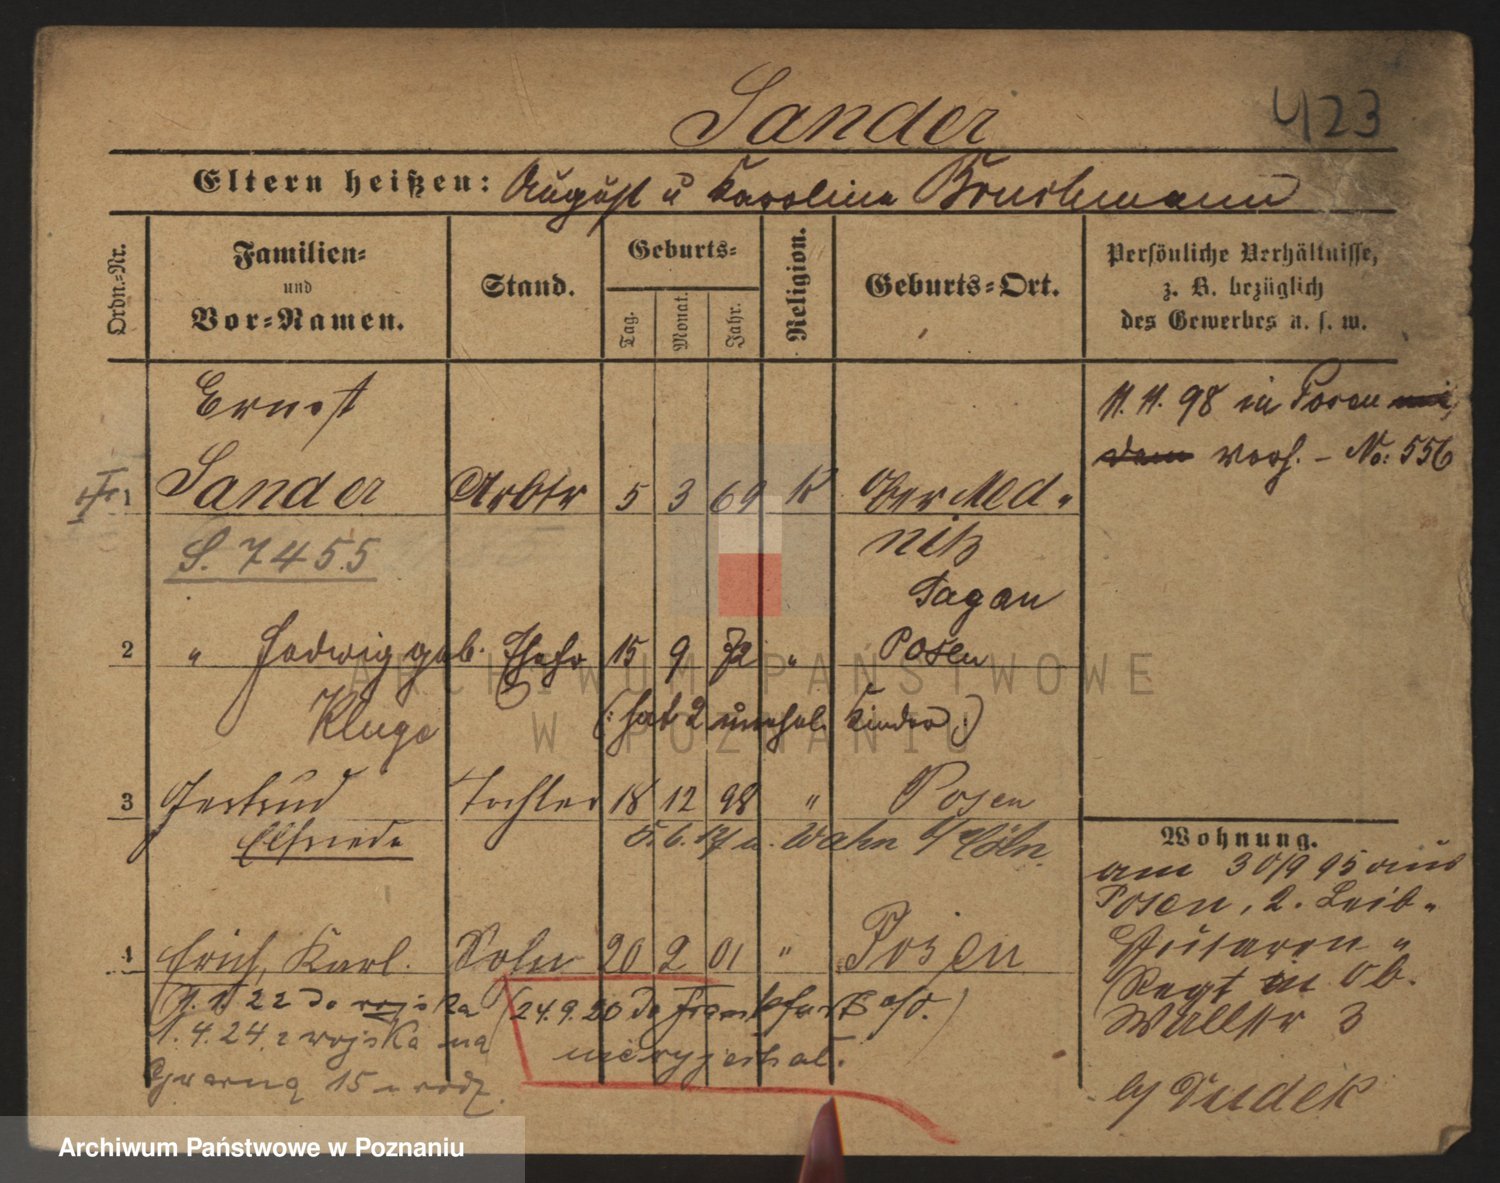 Sander
423
Eltern heißen: August u Karolina Bruckmann
Ordn.-Nr.
Familien- und Vor-Namen.
Stand.
Geburts-
Tag.
Monat.
Jahr.
Religion.
Geburts-Ort.
Persönliche Verhältnisse,
z. B. bezüglich
des Gewerbes u. s. w.
Ernst
1 Sander Arbtr 5 3 69 K Ober Med-
nitz
Sagan
S. 7455
11. 11. 98 in Posen
verh. - No: 556
2 " Hedwig geb. Ehefr 15 9 72 " Posen
Kluge (: hat 2 unehel. Kinder :)
3 Gertrud Tochter 18 12 98 " Posen
Elfriede 5. 6. 17 n. Wahn b/ Cöln.
4 Erich, Karl. Sohn 20 2 01 " Posen
22 do wojska (24.9.20 do Frankfurt a/O.)
1. 4. 24. z wojska na nie wyjechał.
Gwarną 15 u rodz.
Wohnung.
am 30/9 95 aus
Posen, 2. Leib-
Husaren-
Regt Ob.
Wallstr 3
b/ Dudek
ARCHIWUM PAŃSTWOWE
W POZNANIU
Archiwum Państwowe w Poznaniu